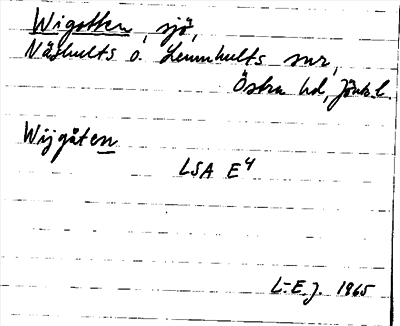 Wigotten, sjö,
Näshults o. Lemnhults snr,
Östra hd, Jönk. l.
Wijgåten
LSA E4
L-E.J. 1965